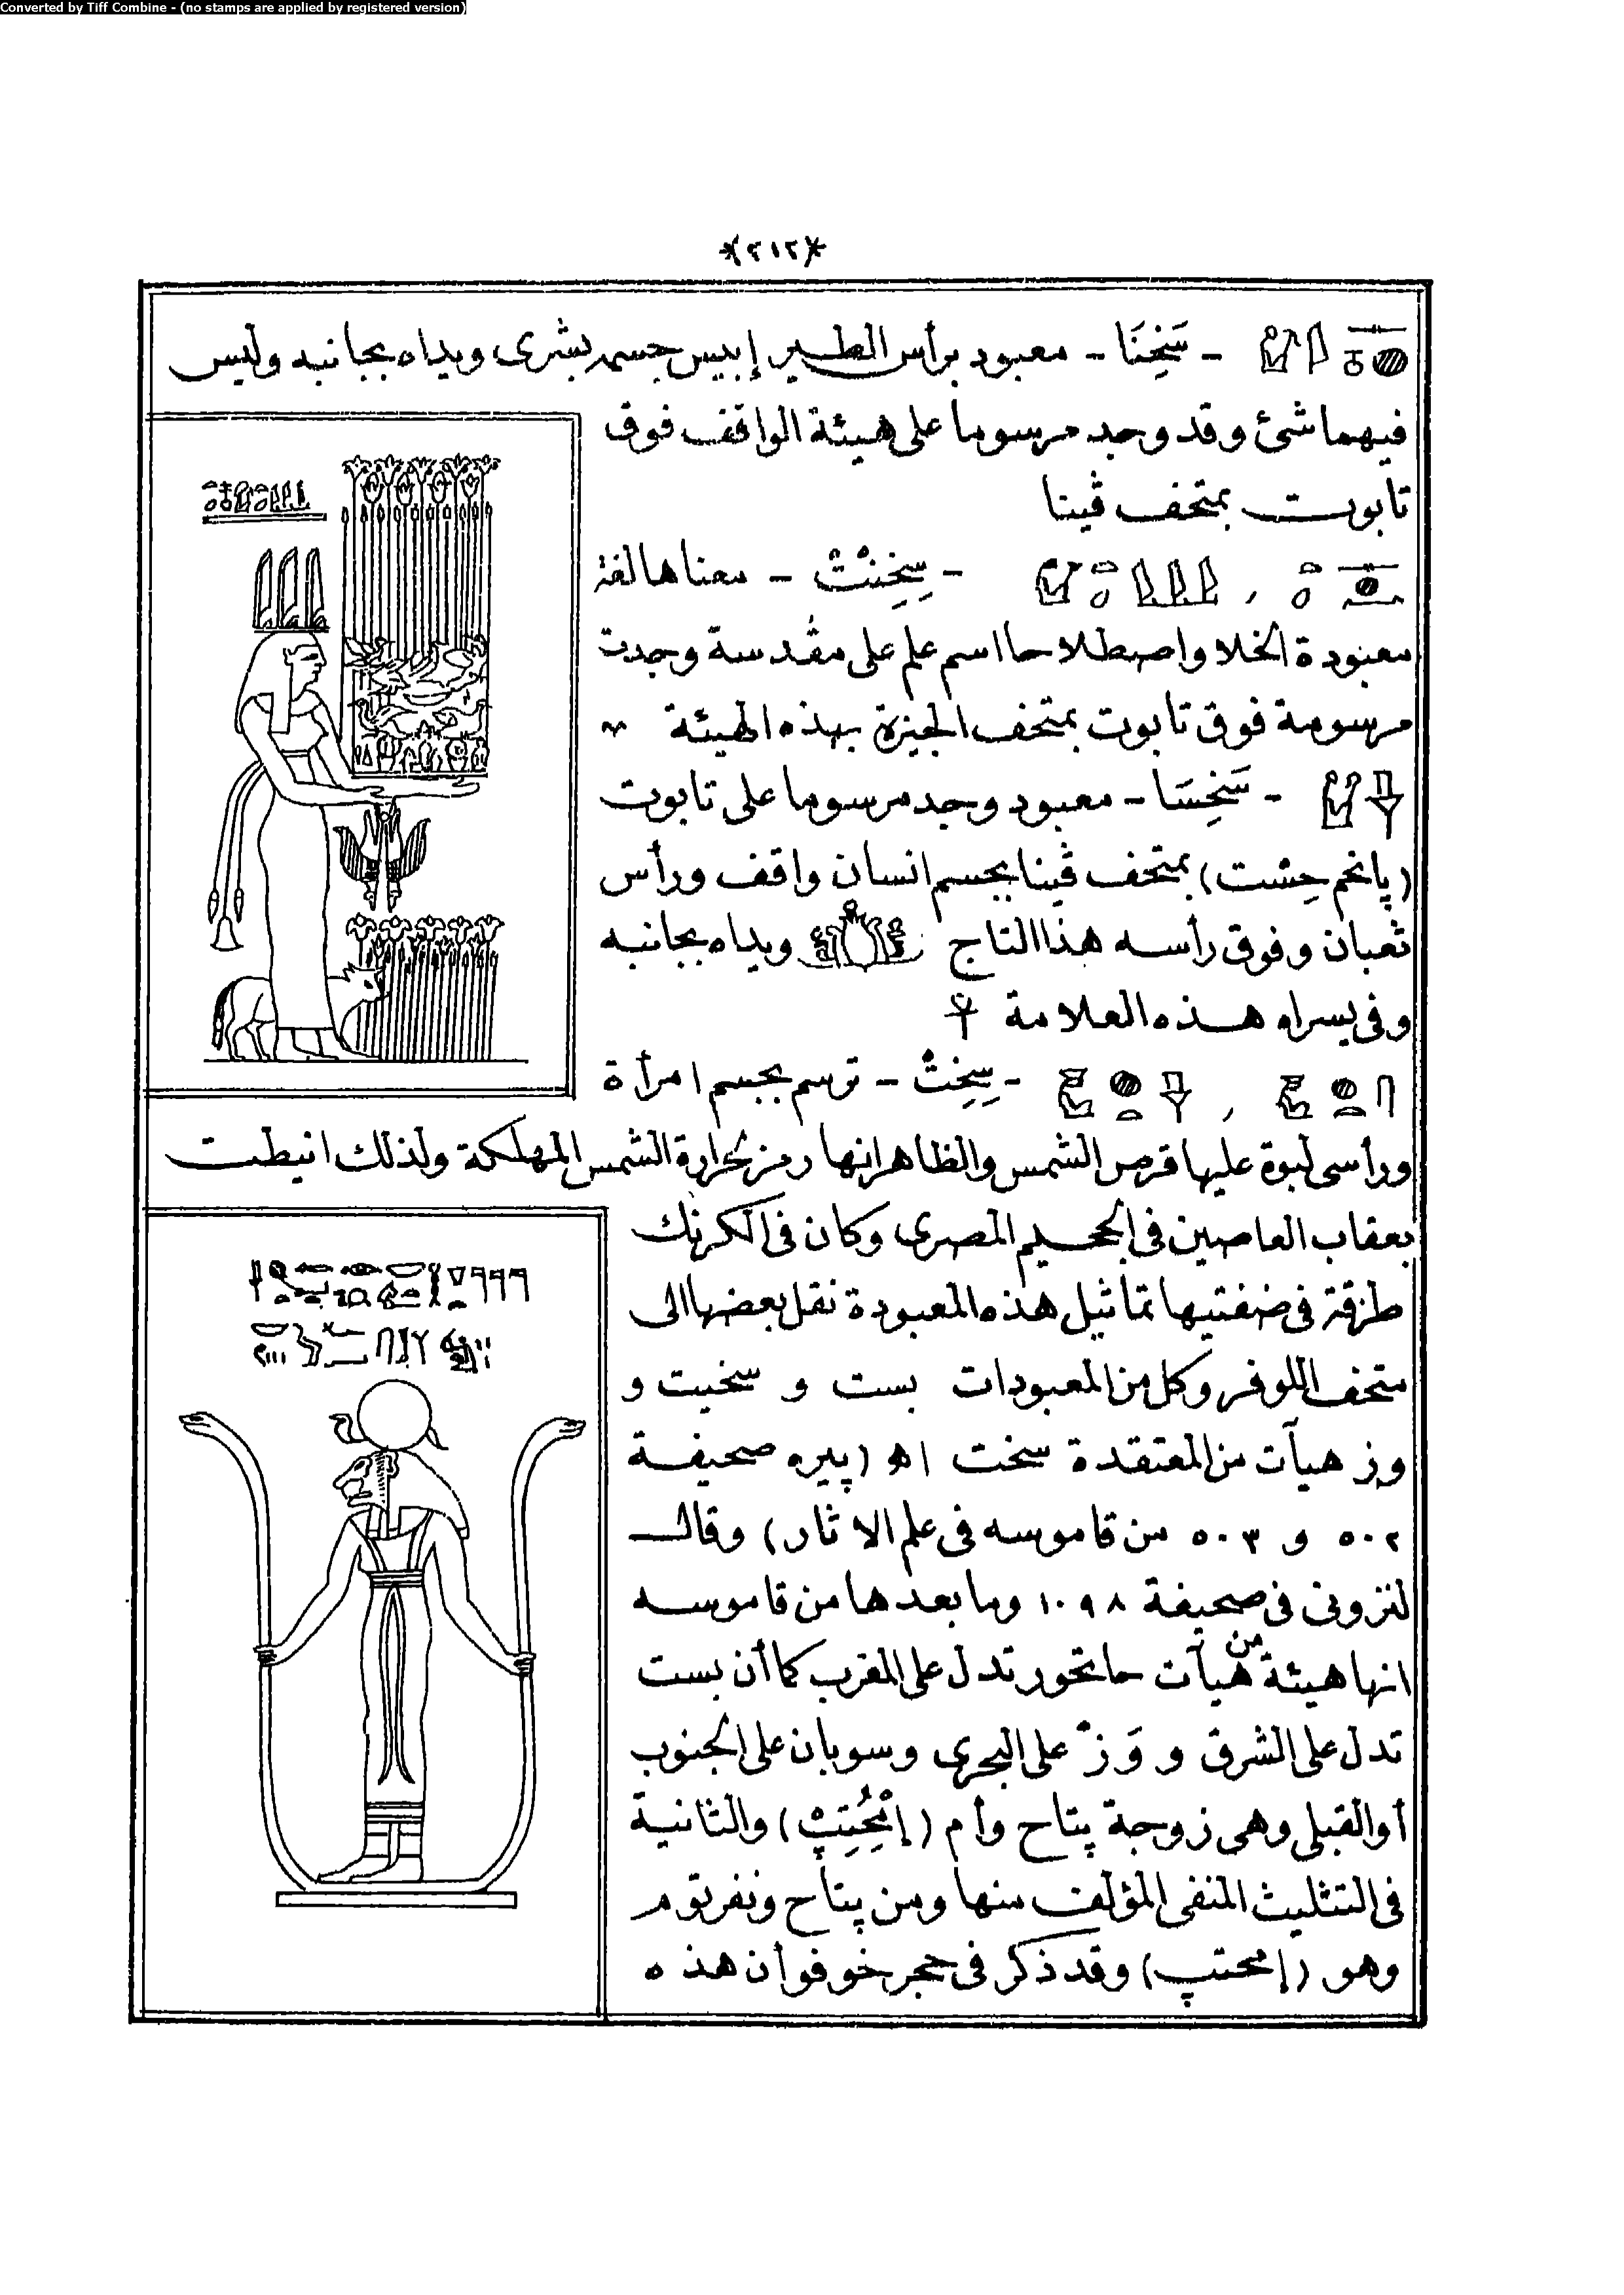 Converted by Tiff Combine - (no stamps are applied by registered version)
*(٢١٢)*
- سَخِنَا - معبود برأس الطير إبيس جسمه بشرى ويداه بجانبه وليس
فيهما شئ وقد وجد مرسوما على هيئة الواقف فوق
تابوت بمتحف ڤينا
- سِخِنْتْ - معناها لغة
معبودة الخلا واصطلاحا اسم علم على مقدسة وجدت
مرسومة فوق تابوت بمتحف الجيزة بهذه الهيئة
- سَخِسَا - معبود وجد مرسوما على تابوت
(پانحم حِست) بمتحف ڤينا بجسم انسان واقف ورأس
ثعبان وفوق رأسه هذا التاج ويداه بجانبه
وفى يسراه هذه العلامة
- سِخِتْ - ترسم بجسم امرأة
ورأسى لبوة عليها قرص الشمس والظاهر انها رمز لحرارة الشمس المهلكة ولذلك انيطت
بعقاب العاصين فى الجحيم المصرى وكان فى الكرنك
طرقة فى ضفتيها تماثيل هذه المعبودة نقل بعضها الى
متحف اللوفر وكل من المعبودات بست و سخيت و
وز هيآت من المعتقدة سخت اه (پيره صحيفة
٥٠٢ و ٥٠٣ من قاموسه فى علم الاثار) وقال
لنزونى فى صحيفة ١٠٩٨ وما بعدها من قاموسه
انها هيئة من هيآت حاتحور تدل على المغرب كما أن بست
تدل على الشرق و وَز على البحرى وسوبان على الجنوب
أو القبلى وهى زوجة پتاح وأم (إمْحُتِپْ) والثانية
فى التثليث المنفى المؤلف منها ومن پتاح ونفرتوم
وهو (إمحتپ) وقد ذكر فى حجر خوفو أن هذه